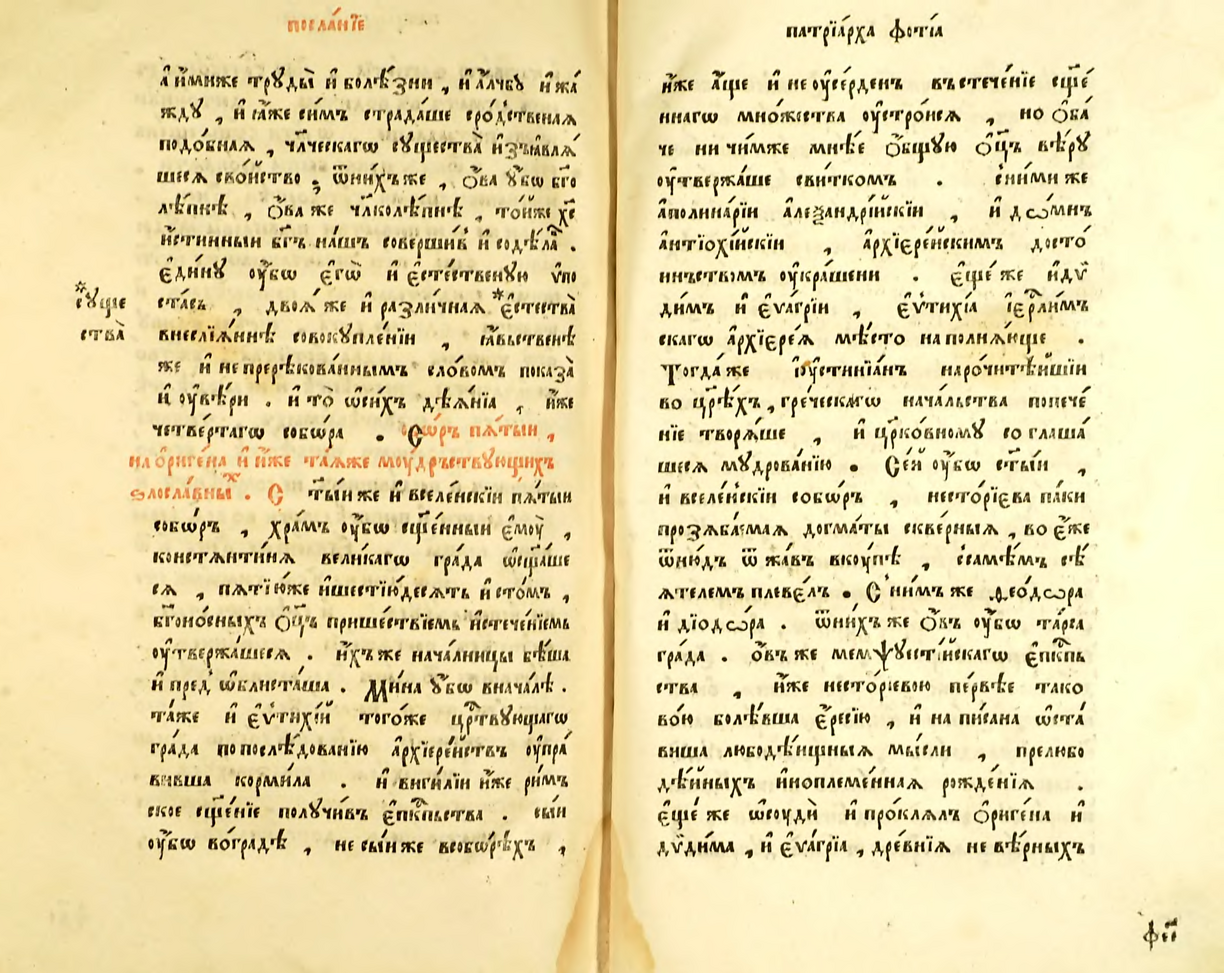 посла́нїе
а҆и҆́миже трꙋды̀ и҆ болѣ́зни , и҆ а҆́лчбꙋ и҆ жа́
ждꙋ , и҆ ꙗ҆́же си́мъ страда́ше сро́дственаѧ
подо́бнаѧ , чл҃ческагѡ сꙋщества̀ и҆з̾ꙗвлѧ́
шеесѧ сво́йство ; ѿни́хъже , ѻ҆́ва ᲂу҆́бѡ бг҃о
лѣ́пнѣ , ѻ҆́ва же чл҃колѣ́пнѣ , то́йже хс҃
и҆́стинныи бг҃ъ на́шъ соверши́в и҆ содѣ́ла .
є҆ди́нꙋ ᲂу҆́бѡ є҆гѡ̀ и҆ є҆сте́ственꙋю ѵ҆по
ста́сь , двоѧ́ же и҆ разли́чнаѧ * є҆стества̀
*сꙋще
ства̀
внеслїѧ́ннѣ совокꙋпле́нїи , ꙗ҆́вьственѣ
же и҆ непререко́ванныμъ сло́вомъ показа̀
и҆ ᲂу҆вѣ́ри . и҆ то̀ ѡ҆си́хъ дѣѧ́нїѧ , и҆́же
четве́ртагѡ собѡ́ра . Собѡ́ръ пѧ́тыи ,
на ѻ҆риге́на и҆ и҆̀же та́ѧже моу́дрьствꙋющихъ
ѕлосла́вныⷯ . С т҃ы́иже и҆ вселе́нскїи пѧ́тыи
собѡ́ръ , хра́мъ ᲂу҆́бѡ сщ҃е́нныи є҆моу̀ ,
констѧнти́нѧ вели́кагѡ гра́да ѡ҆сщ҃а́ше
сѧ , пѧ́тїю́же и҆шестїю́десѧть и҆ сто́мъ ,
бг҃оно́сныхъ ѻ҆ц҃ъ прише́ствїемь и҆стече́нїемь
ᲂу҆твержа́шеесѧ . и҆́хъже нача́лницы бѣ́ша
и҆ пред̾ ѡ҆блиста́ша . Ми́на ᲂу҆́бѡ внача́лѣ .
та́же и҆ є҆ѵти́хїй того́же црⷭ҇твꙋющагѡ
гра́да попослѣ́дованїю а҆рхїере́иствъ ᲂу҆пра́
вивша корми́ла . и҆ виги́лїи и҆́же ри́мъ
ское сщ҃е́нїе полꙋчи́въ є҆пⷭ҇кпьства . сы́и
ᲂу҆́бѡ во́градѣ , не сы́иже всобѡ́рѣхъ ,
патрїа́рха фо́тїа
и҆́же а҆́ще и҆ не ᲂу҆се́рденъ въстече́нїе сщ҃е́
ннагѡ мно́жества ᲂу҆стро́исѧ , но ѻ҆ба́
че ни чи́мже мне́е ѻ҆́бщꙋю ѻ҆ц҃ъ вѣ́рꙋ
ᲂу҆твержа́ше сви́ткомъ . сни́ми же
а҆полина́рїи а҆леѯандрі́искїи , и҆ до́мнъ
а҆нтїохі́искїи , а҆рхїере́искимъ досто́
инъствомъ ᲂу҆кра́шени . є҆ще́ же и҆дѵ̀
димъ и҆ є҆ѵа́грїи , є҆ѵти́хїа і҆ерⷭ҇лимъ
скагѡ а҆рхїере́ѧ мѣ́сто наполнѧ́юще .
Тогда́же і҆ꙋстинїа́нъ нарочитѣ́ишїи
во цр҃ѣ́хъ , гре́ческагѡ нача́льства попече́
нїе творѧ́ше , и҆ цр҃ко́вномꙋ со глаша́
шеесѧ мꙋдрова́нїю . Се́й ᲂу҆́бѡ ст҃ы́и ,
и҆ вселе́нскїи собѡ́ръ , несто́рїева па́ки
прозѧба́емаѧ догма́ты скве́рныѧ , во є҆́же
ѿню́дъ ѿ жа́въ вкꙋ́пѣ , сса́мѣмъ сѣ́
ѧтелемъ пле́велъ . С ни́мъ же ѳео́дѡра
и҆ дїодѡ́ра . ѿни́хъ же ѻ҆́въ ᲂу҆́бѡ та́рса
гра́да . ѻ҆́въ же мемѱꙋесті́искагѡ є҆пⷭ҇кпь
ства , и҆́же несто́рїевою пе́рвѣе тако
во́ю болѣ́вша є҆́ресїю , и҆ на пи́сана ѡ҆ста́
виша любодѣ́ищныѧ мы́сли , прелюбо
дѣ́йныхъ и҆ноплеме́ннаѧ рожде́нїѧ .
є҆ще́ же ѡ҆соудѝ и҆ про́клялъ ѻ҆риге́на и҆
дѵ̀дима , и҆ є҆ѵа́грїа , дре́внїѧ не вѣ́рныхъ
фп҃і